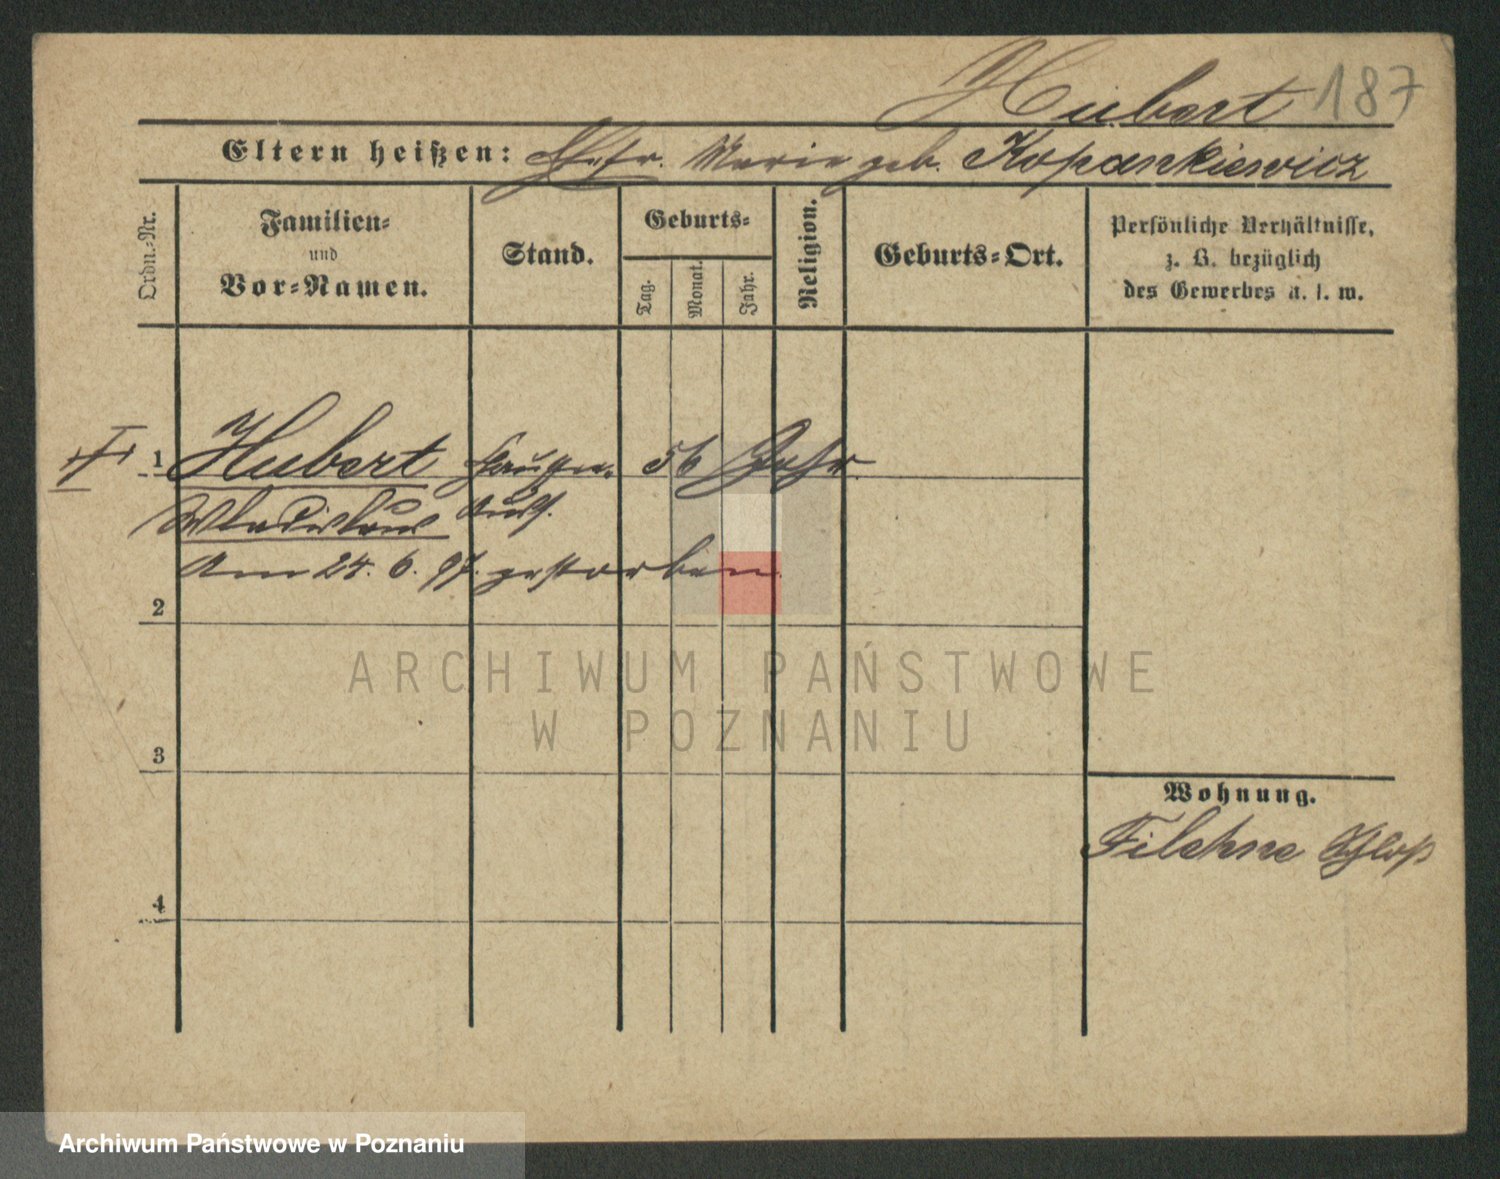 Hubert 187
Eltern heißen: Ehefr. Marie geb. Kopankiewicz
Ordn.-Nr.
Familien-
und
Vor-Namen.
Stand.
Geburts-
Tag.
Monat.
Jahr.
Religion.
Geburts-Ort.
Persönliche Verhältnisse,
z. B. bezüglich
des Gewerbes u. s. w.
1 Hubert 56 Jahr
Wladislaus
Am 24. 6. 97. gestorben.
2
3
4
Wohnung.
Filehne Schloß
ARCHIWUM PAŃSTWOWE
W POZNANIU
Archiwum Państwowe w Poznaniu